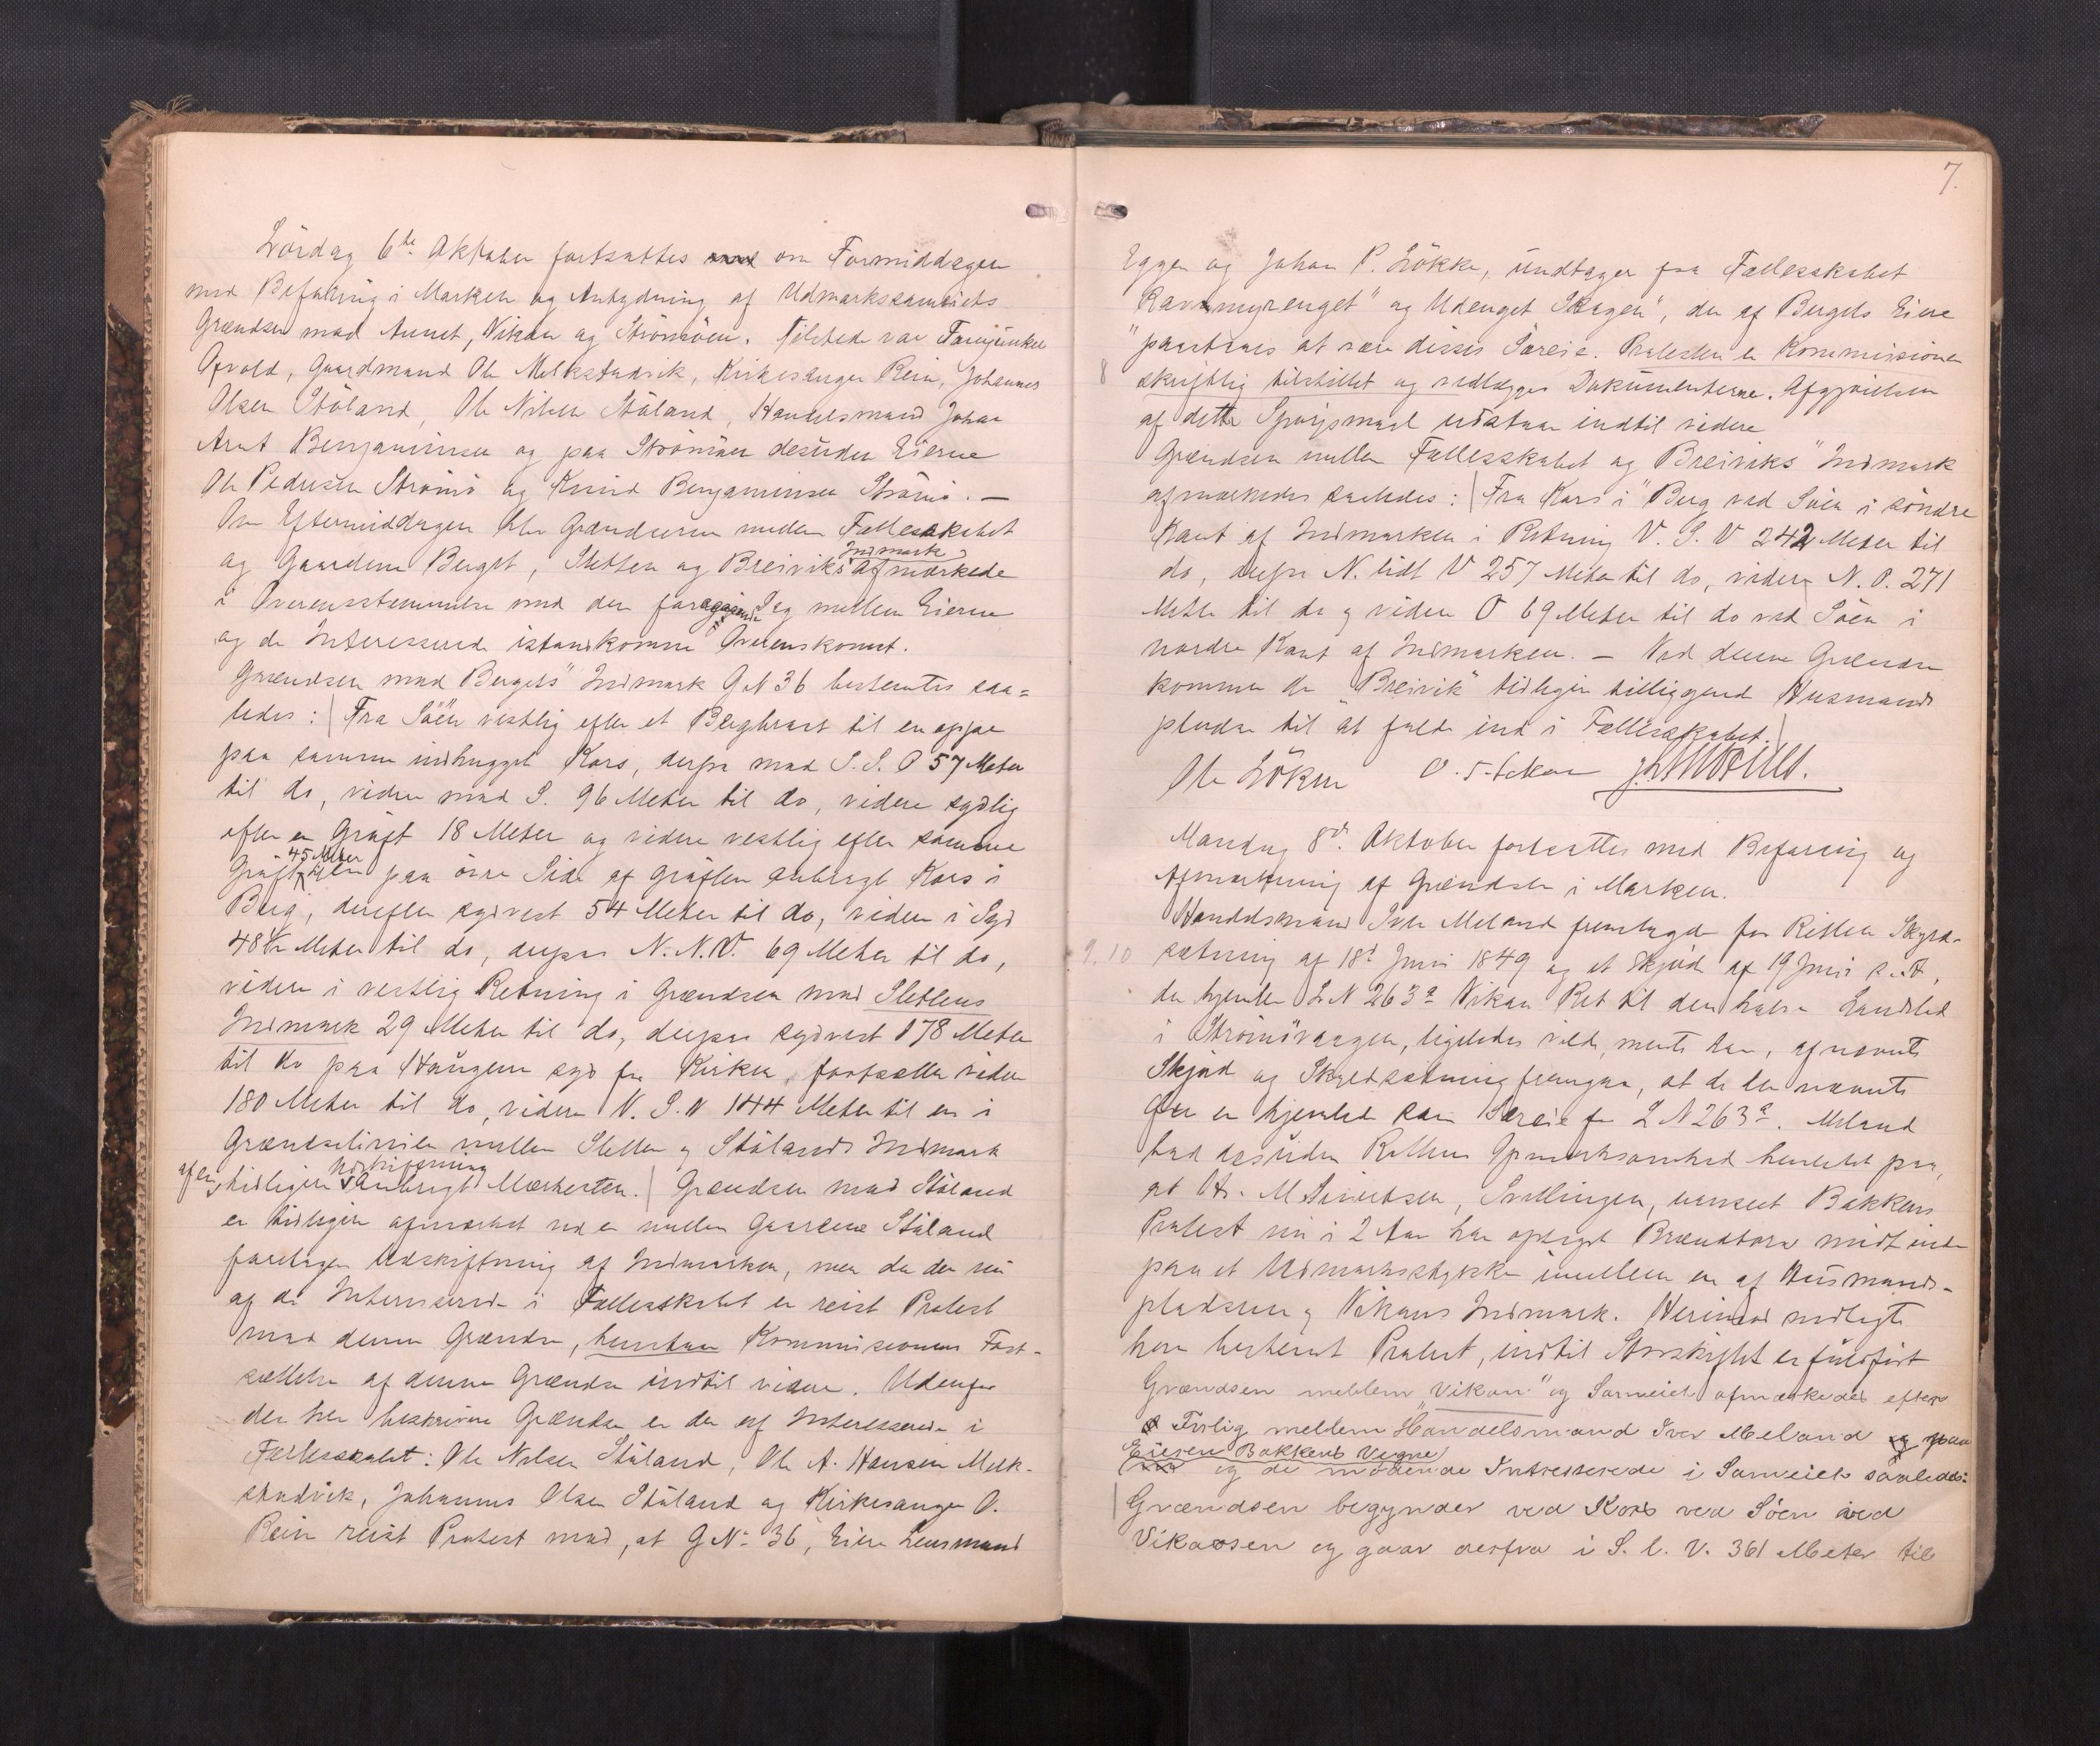 Lördag 6te Oktober fortsattes med om Formiddagen
med Befaring i Marken og Antydning af Udmarkssameiets
Grændser mod Aunet, Vikan og Strömöen. Tilstede var Forpagter
Opvold, Gaardmand Ole Melkstadvik, Kirkesanger Rein, Johannes
Olsen Stöland, Ole Nilsen Stöland, Handelsmand Johan
Arnt Benjaminsen og paa Strömöen desuden Eierne
Ole Pedersen Strömö og Knud Benjaminsen Strömö. —
Om Eftermiddagen blev Grændserne mellem Fællesskabet
og Gaardene Berget, Sletten og Breiviks Indmark afmærkede
i Overensstemmelse med den foregaaende Dag mellem Eierne
og de Interesserede istandkomne Overenskomst.
Grændsen mod "Bergets" Indmark G N 36 bestemtes saa=
ledes: | Fra Söen vestlig efter et Bergbrast til en oppe
paa samme indhugget Kors, derfra mod S. S. O 57 Meter
til do, videre mod S. 96 Meter til do, videre sydlig
efter en Gröft 18 Meter og videre vestlig efter samme
Gröft 45 Meter til en paa övre Side af Gröften anbragt Kors i
Berg, derefter sydvest 54 Meter til do, videre i Syd
48 Meter til do, derpaa N. N. V. 69 Meter til do,
videre i vestlig Retning i Grændsen mod Slettens
Indmark 29 Meter til do, derpaa sydvest 178 Meter
til do paa Haugene syd for Kirken, fortsætter videre
180 Meter til do, videre V. S. V 144 Meter til en i
Grændselinien mellem Sletten og Stölands Indmark
af en tidligere Udskiftning anbragt Mærkesten. | Grændsen mod Stöland
er tidligere afmærket ved en mellem Gaardene Stöland
foretagen Udskiftning af Indmarken, men da der nu
af de Interesserede i Fællesskabet er reist Protest
mod denne Grændse, henstaar Kommissionens Fast-
sættelse af denne Grændse indtil videre. Udenfor
den her beskrevne Grændse er der af Interesserede i
Fællesskabet: Ole Nilsen Stöland, Ole A. Hansen Melk-
stadvik, Johannes Olsen Stöland og Kirkesanger O.
Rein reist Protest mod, at G N= 36, Eiere Lensmand
7.
Eggen og Johan P. Lökke, undtager fra Fællesskabet
"Ravnmyrenget" og Udenget "Skagen", der af Bergets Eiere
paastaaes at være disses Særeie. Protesten er Kommissionen
8 skriftlig tilstillet og vedlægges Dokumenterne. Afgjörelsen
af dette Spörgsmaal udstaar indtil videre
Grændsen mellem Fællesskabet og "Breiviks" Indmark
afmærkedes saaledes: | Fra Kors i Berg ved Söen i söndre
Kant af Indmarken i Retning V. S. V 242 Meter til
do, derfra N. lidt V 257 Meter til do, videre N. O. 271
Meter til do og videre O 69 Meter til do ved Söen i
nordre Kant af Indmarken. — Ved denne Grændse
kommer de "Breivik" tidligere tilliggende Husmands
pladse til at falde ind i Fællesskabet. |
Ole Löken O. 
Mandag 8de Oktober fortsattes med Befaring og
Afmærkning af Grændsen i Marken.
Handelsmand Iver Meland fremlagde for Retten Skyld-
9.10 sætning af 18de Juni 1849 og et Skjöde af 19 Juni s. A,
der hjemler L N 263a Vikan Ret til den halve Landsled
i Strömövaagen, ligeledes vilde, mente han, af nævnte
Skjöde og Skyldsætning fremgaa, at de der nævnte
Öer er hjemlet som Særeie for L N 263a. Meland
bad desuden Rettens Opmærksomhed henledet paa,
at Hr. M Sivertsen, Svellingen, uanseet Bakkens
Protest nu i 2 Aar har optaget Brændtorv midt inde
paa et Udmarksstykke imellem en af Husmands-
pladsene og Vikans Indmark. Herimod nedlagte
han bestemt Protest, indtil Storskiftet er fuldfört
Grændsen mellem "Vikan" og Sameiet afmærkedes efter
Forlig mellem Handelsmand Iver Meland og paa
Eieren Bakkens Vegne og de mödende Interesserede i Sameiet saaledes:
| Grændsen begynder ved Kors ved Söen ved
Vikaosen og gaar derfra i S. l. V. 361 Meter til